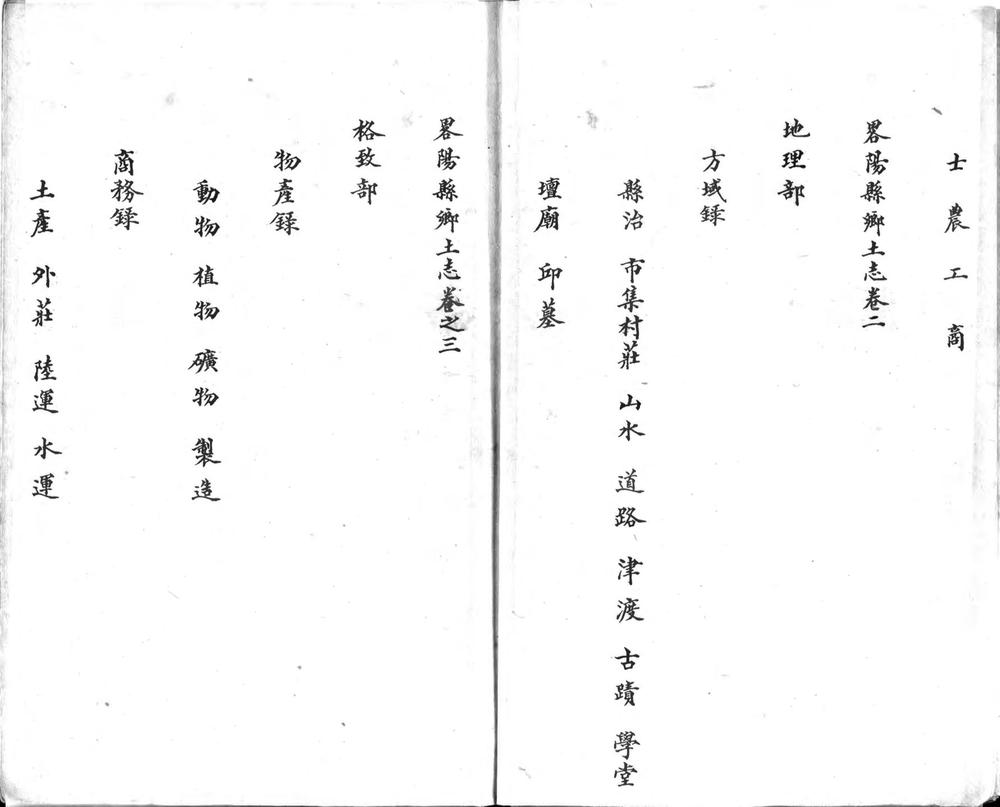 士 農 工 商
畧陽縣鄉土志卷二
地理部
方域錄
縣治 市集村莊 山水 道路 津渡 古蹟 學堂
壇廟 邱墓
畧陽縣鄉土志卷之三
格致部
物產錄
動物 植物 礦物 製造
商務錄
土產 外莊 陸運 水運